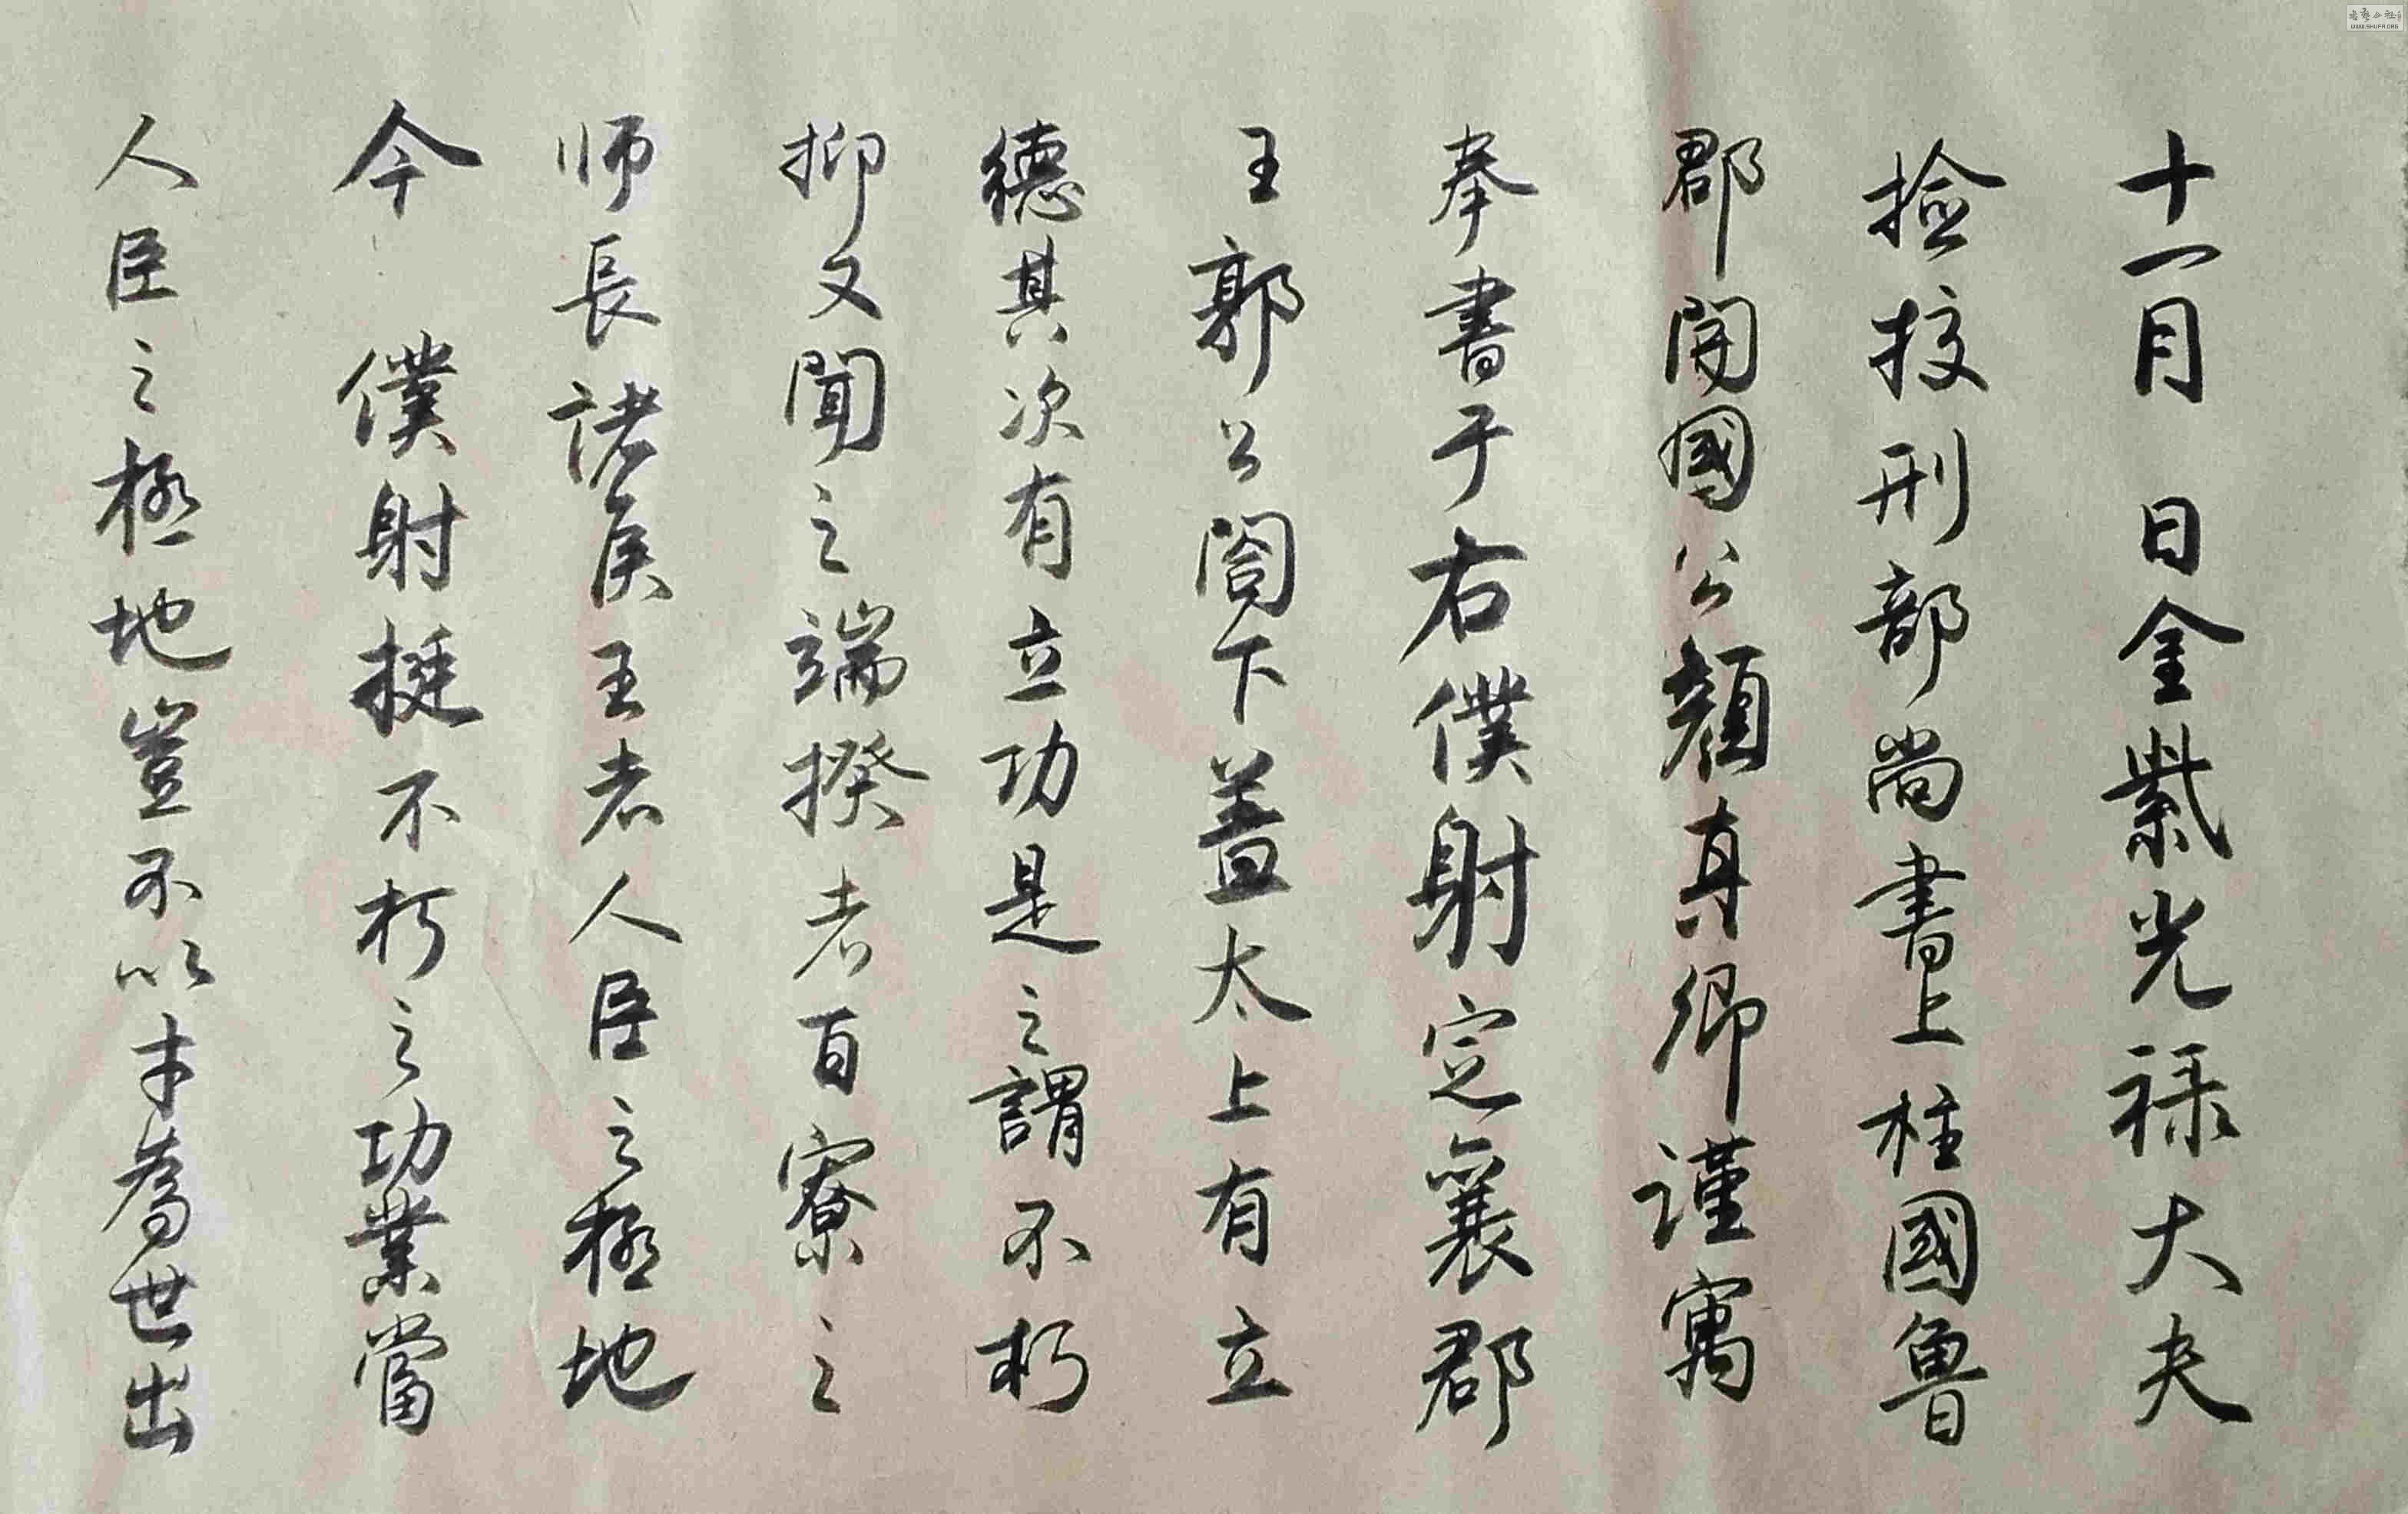 十一月 日金紫光禄大夫
撿挍刑部尚書上柱國魯
郡開國公顏真卿謹寓
奉書于右僕射定襄郡
王郭公閣下蓋太上有立
德其次有立功是之謂不朽
抑又聞之端揆者百寮之
师長諸侯王者人臣之極地
今 僕射挺不朽之功業當
人臣之極地豈不以才為世出
WWW.SHUFA.ORG